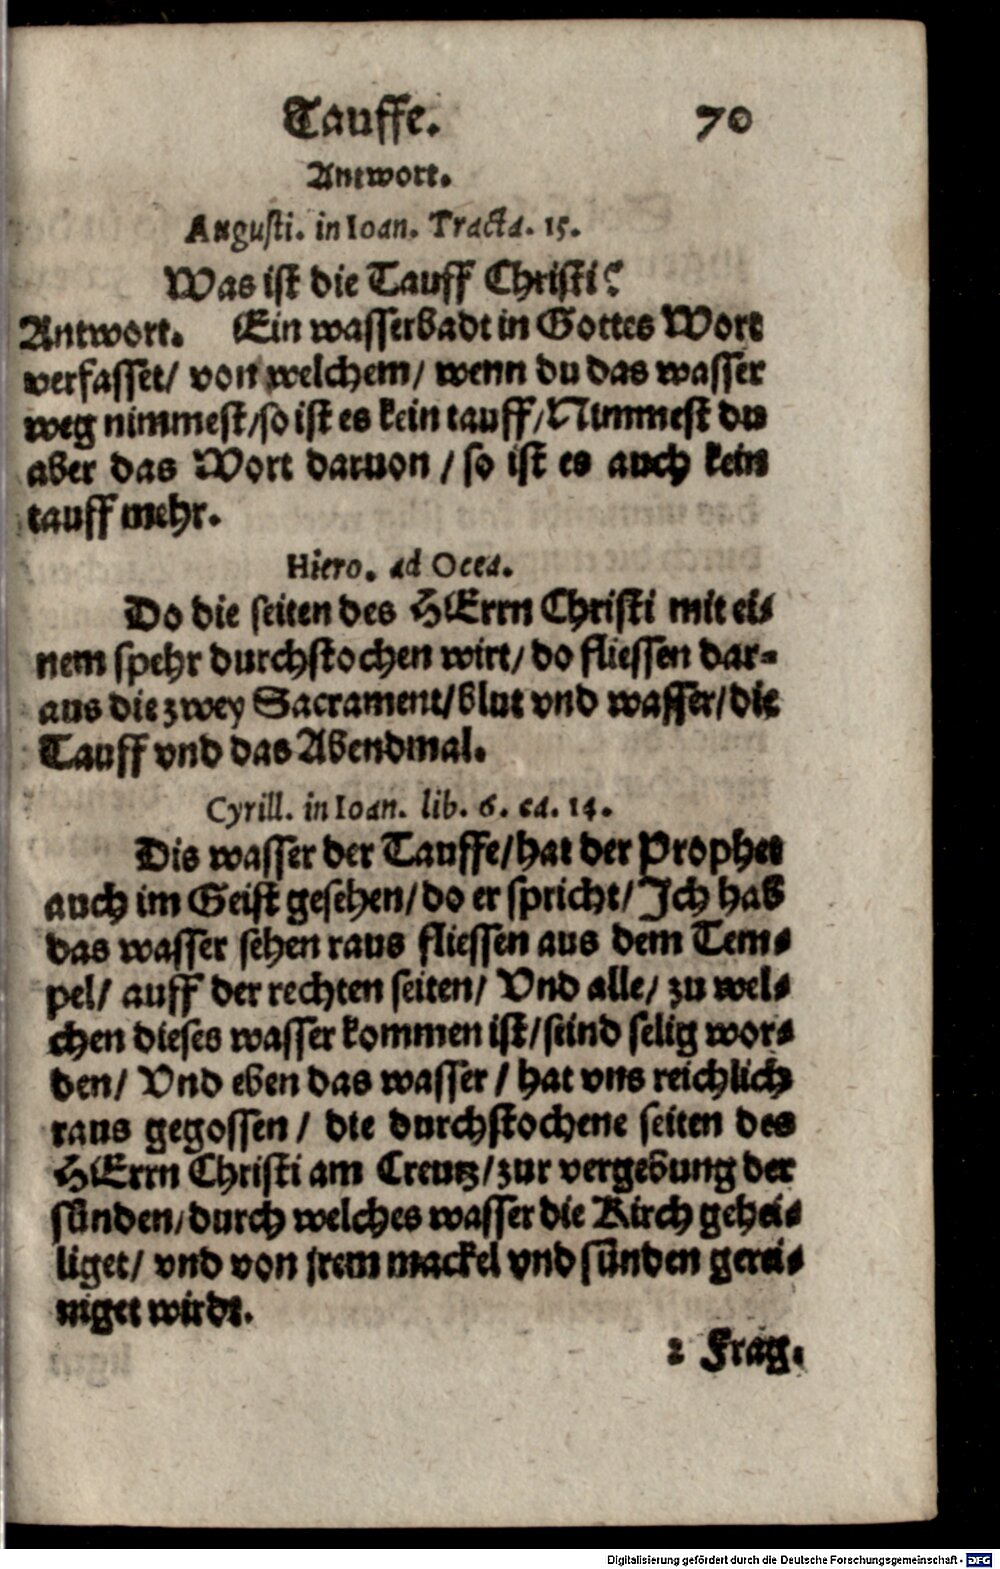 Tauffe. 70
Antwort.
Augusti. in Ioan. Tracta. 15.
Was ist die Tauff Christi?
Antwort. Ein wasserbadt in Gottes Wort
verfasset/ von welchem/ wenn du das wasser
weg nimmest/so ist es kein tauff/Nimmest du
aber das Wort daruon / so ist es auch kein
tauff mehr.
Hiero. ad Ocea.
Do die seiten des HErrn Christi mit ei-
nem spehr durchstochen wirt/ do fliessen dar-
aus die zwey Sacrament/blut vnd wasser/die
Tauff vnd das Abendmal.
Cyrill. in Ioan. lib. 6. ca. 14.
Dis wasser der Tauffe/hat der Prophet
auch im Geist gesehen/do er spricht/ Ich hab
das wasser sehen raus fliessen aus dem Tem-
pel/ auff der rechten seiten/ Vnd alle/ zu wel-
chen dieses wasser kommen ist/seind selig wor-
den/ Vnd eben das wasser / hat vns reichlich
raus gegossen / die durchstochene seiten des
HErrn Christi am Creutz/zur vergebung der
sünden/durch welches wasser die Kirch gehei-
liget/ vnd von jrem mackel vnd sünden gerei-
niget wirdt.
2 Frag.
Digitalisierung gefördert durch die Deutsche Forschungsgemeinschaft - DFG